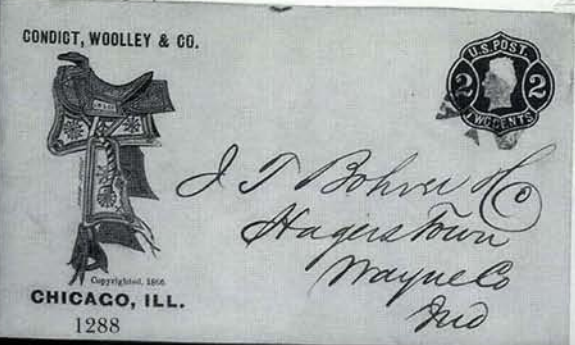 CONDICT, WOOLLEY & CO.
U.S. POST.
2 2
TWO CENTS
J T Bohrer & Co
Hagerstown
Wayne Co
Ind
Copyrighted, 1866.
CHICAGO, ILL.
1288